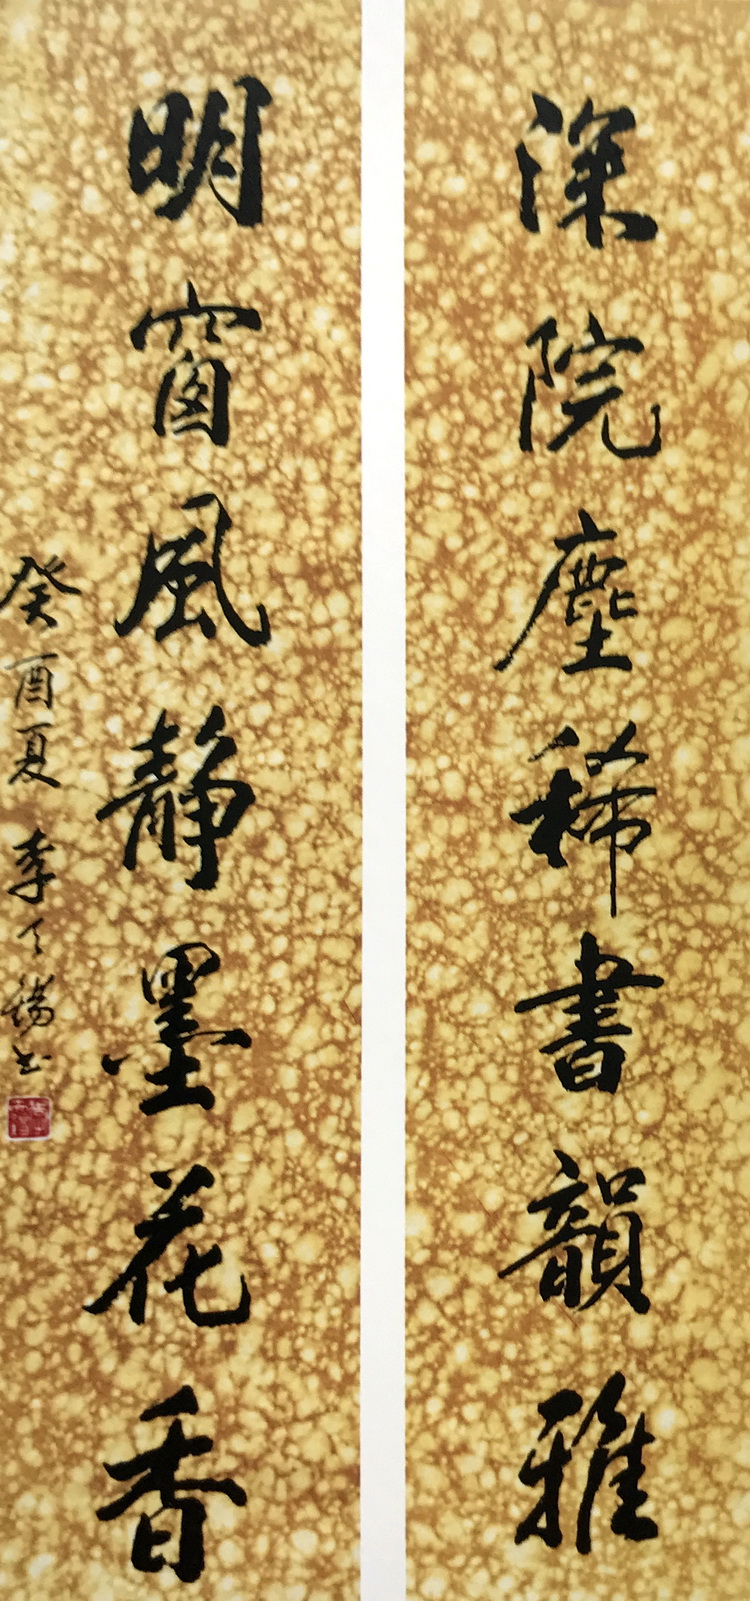 深院塵稀書韻雅
明窗風靜墨花香
癸酉夏 李天錫书